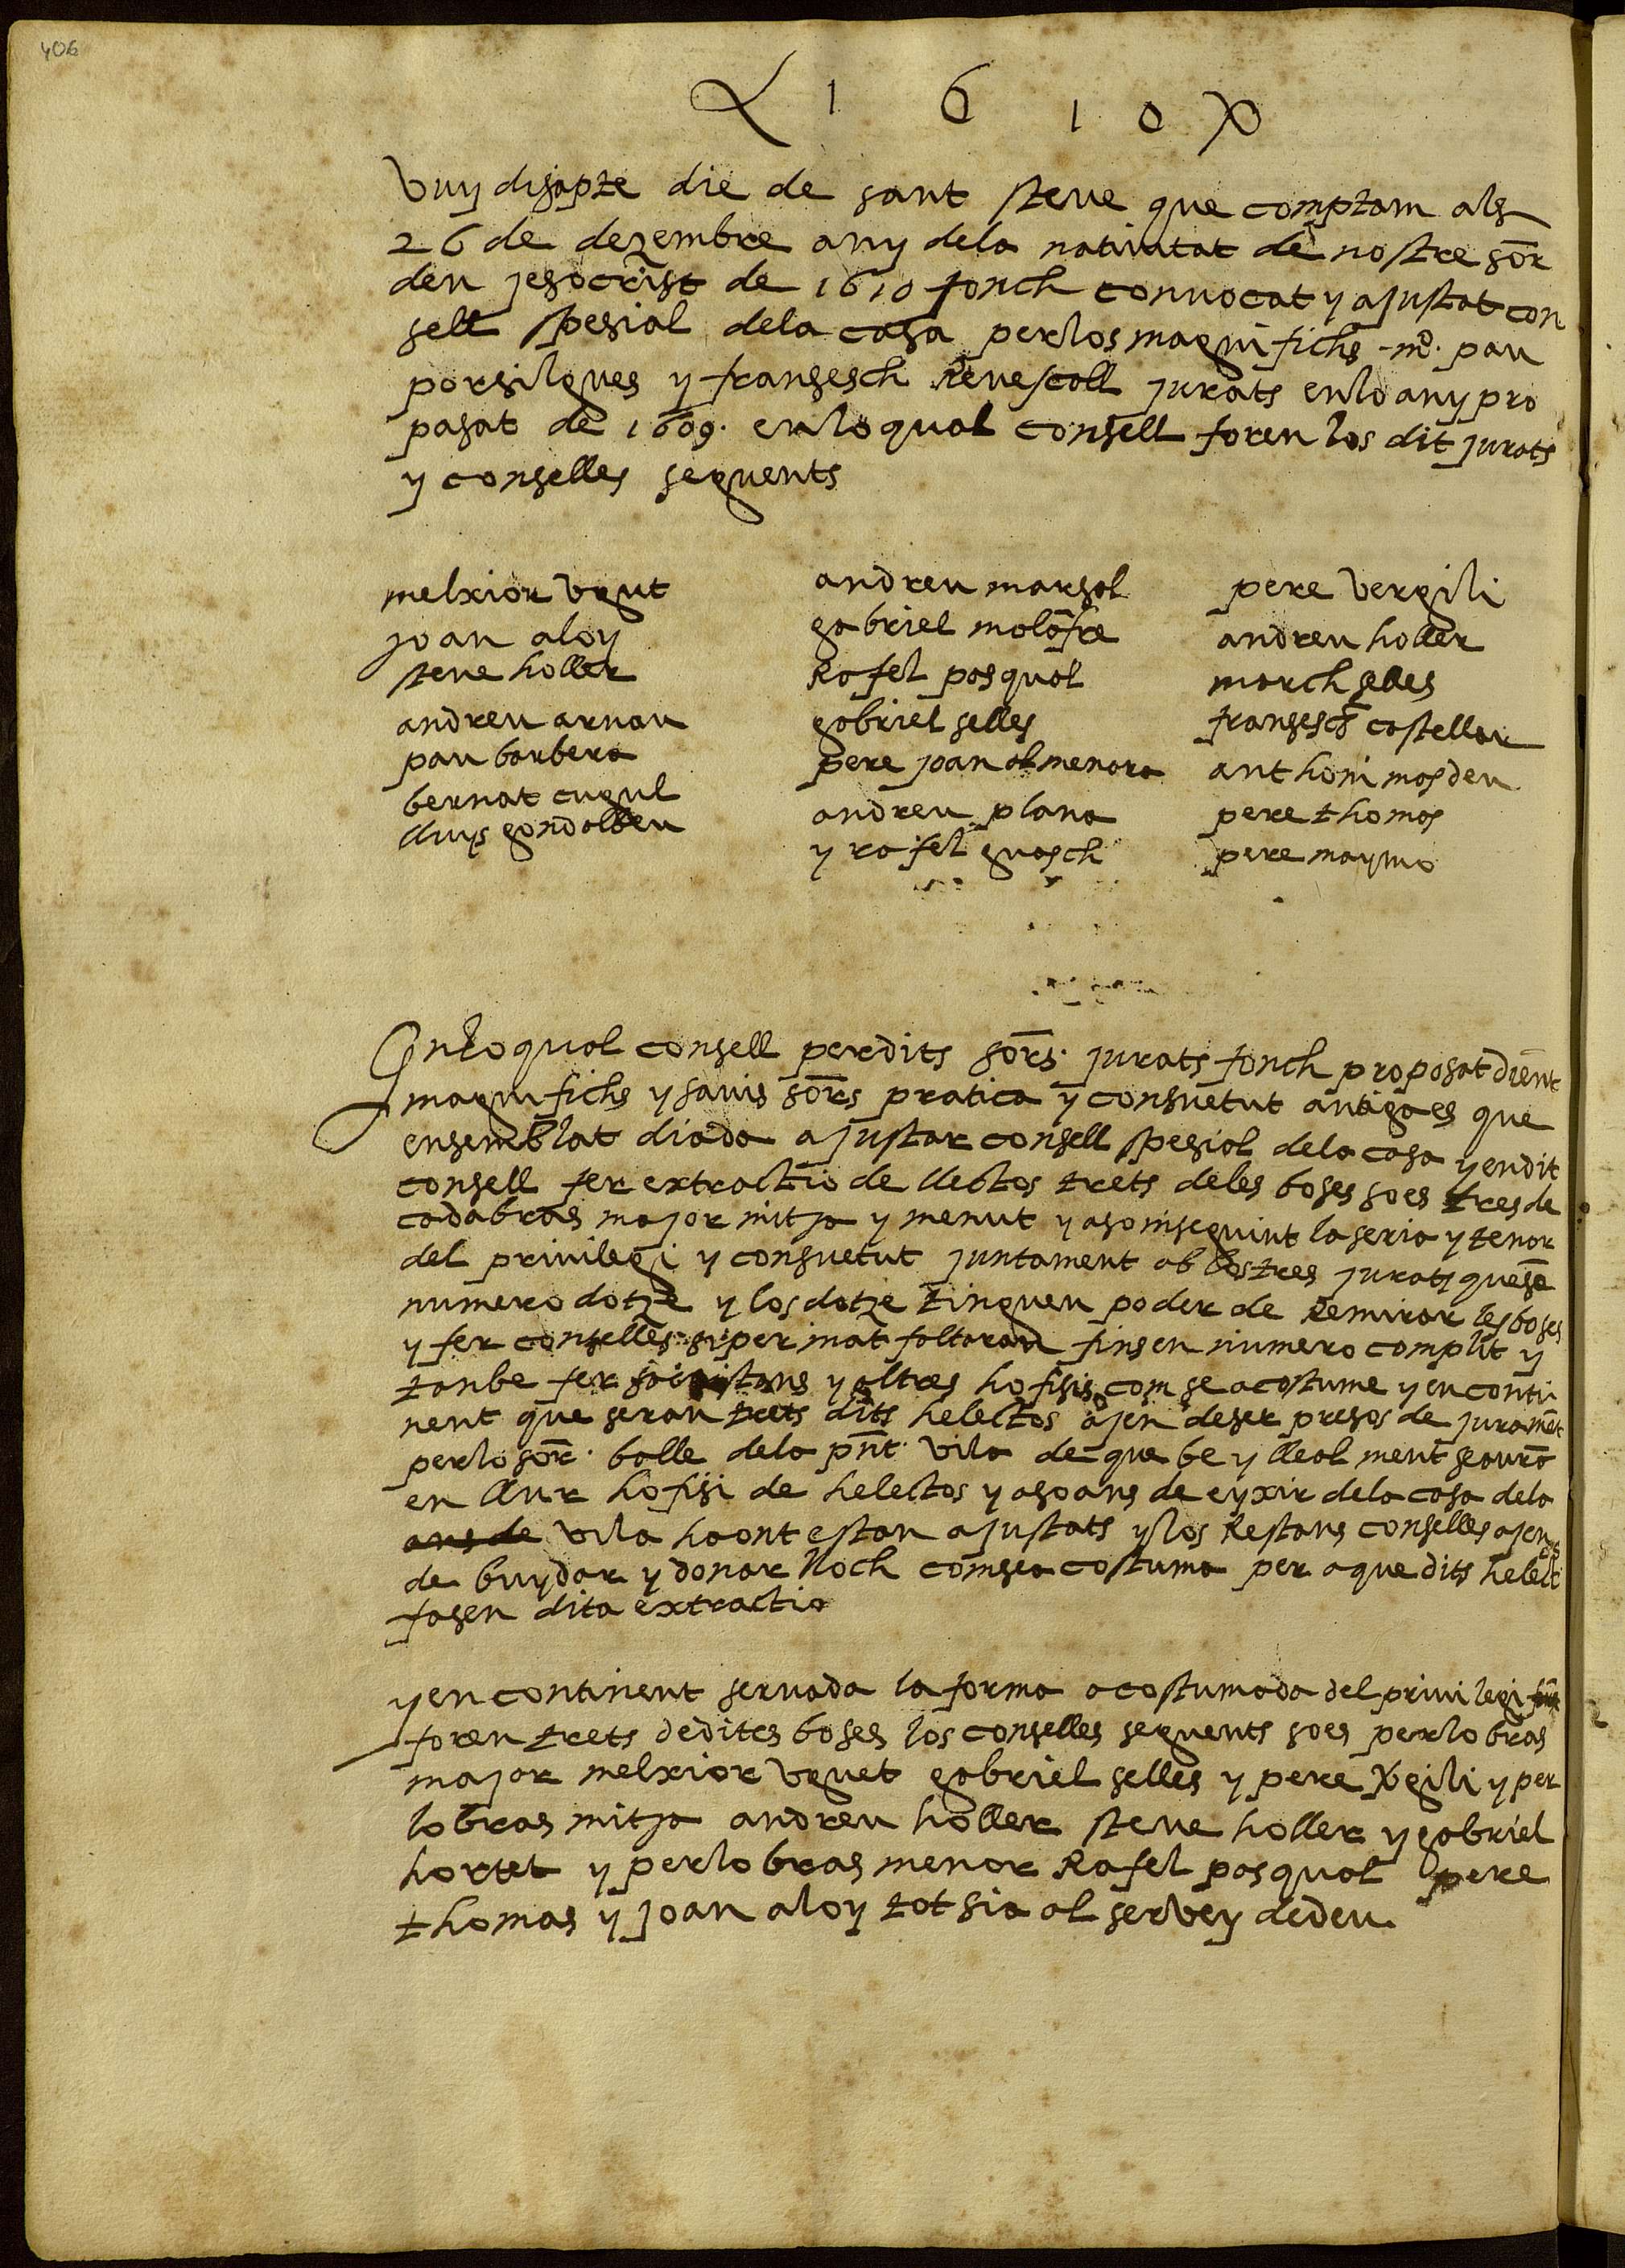 406
1 6 1 0
Vuy disapte die de sant steve que comptam als
26 de dezembre any dela nativitat de nostre sor̄
deu jesocrist de 1610 fonch convocat y ajustat con
sell spesial dela casa perlos magnifichs mº. pau
porsilgues y fransesch Revescoll jurats enlo any pro
pasat de 1609. enlo qual consell foren los dit jurats
y conselles seguents
melxior vgut
joan aloy
steve holler
andreu arnau
pau barbera
bernat cugul
lluys gondolbeu
andreu marsal
gabriel molofre
Rafel pasqual
gabriel selles
pere joan almenara
andreu plana
y rafel guasch
pere vergili
andreu holler
march selles
fransesch castellar
anthoni masdeu
pere thomas
pere maymo
Enlo qual consell perdits sor̄s. jurats fonch proposat dient
magnifichs y savis sor̄s pratica y consuetut antiga es que
ensemblat diada ajustar consell spesial dela casa y endit
consell fer extractio de llectos trets deles boses soes tres de
cadabras major mitja y menut y aso insequint la seria y tenor
del privilegi y consuetut juntament ab los tres jurats que se
numero dotze y los dotze tinguen poder de Remirar les boses
y fer conselles si per mat faltaran fins en numero complit y
tanbe fer y altres hofisis com se acostume y en conti
nent que seran trets dits helectos ajen deser presos de jurament
perlo sor̄. balle dela pn̄t. vila de que be y lleal ment se aura
en llur hofisi de helectos y aso ans de eyxir dela casa dela
ans de vila haont estan ajustats y los Restans conselles ajen
de buydar y donar lloch comsea costuma per aque dits helectos
fasen dita extractio
y en continent servada la forma acostumada del privilegi
foren trets dedites boses los conselles seguents soes perlo bras
major melxior vguet gabriel selles y pere v̄gili y per
lo bras mitja andreu holler steve holler y gabriel
hortet y perlo bras menor Rafel pasqual pere
thomas y joan aloy tot sia al servey dedeu.